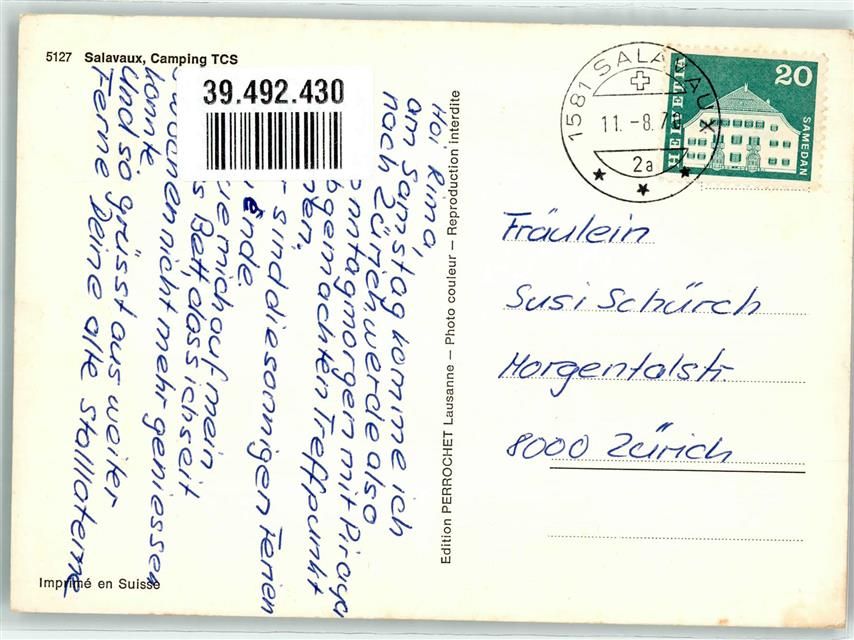 5127 Salavaux, Camping TCS
39.492.430
Hoi Rima,
am Samstag komme ich
nach Zürich werde also
nntagmorgen mit Piroga
bgemachten Treffpunkt
nen.
sind die sonnigen Ferien
ende.
e mich auf mein
s Bett, dass ich seit
Wochen nicht mehr geniessen
konnte.
Und so grüsst aus weiter
Ferne Deine alte Stalllaterne
Imprimé en Suisse
Edition PERROCHET Lausanne — Photo couleur — Reproduction interdite
1581 SALAVAUX
11.-8.7
2a
HELVETIA
20
SAMEDAN
Fräulein
Susi Schürch
Morgentalstr.
8000 Zürich